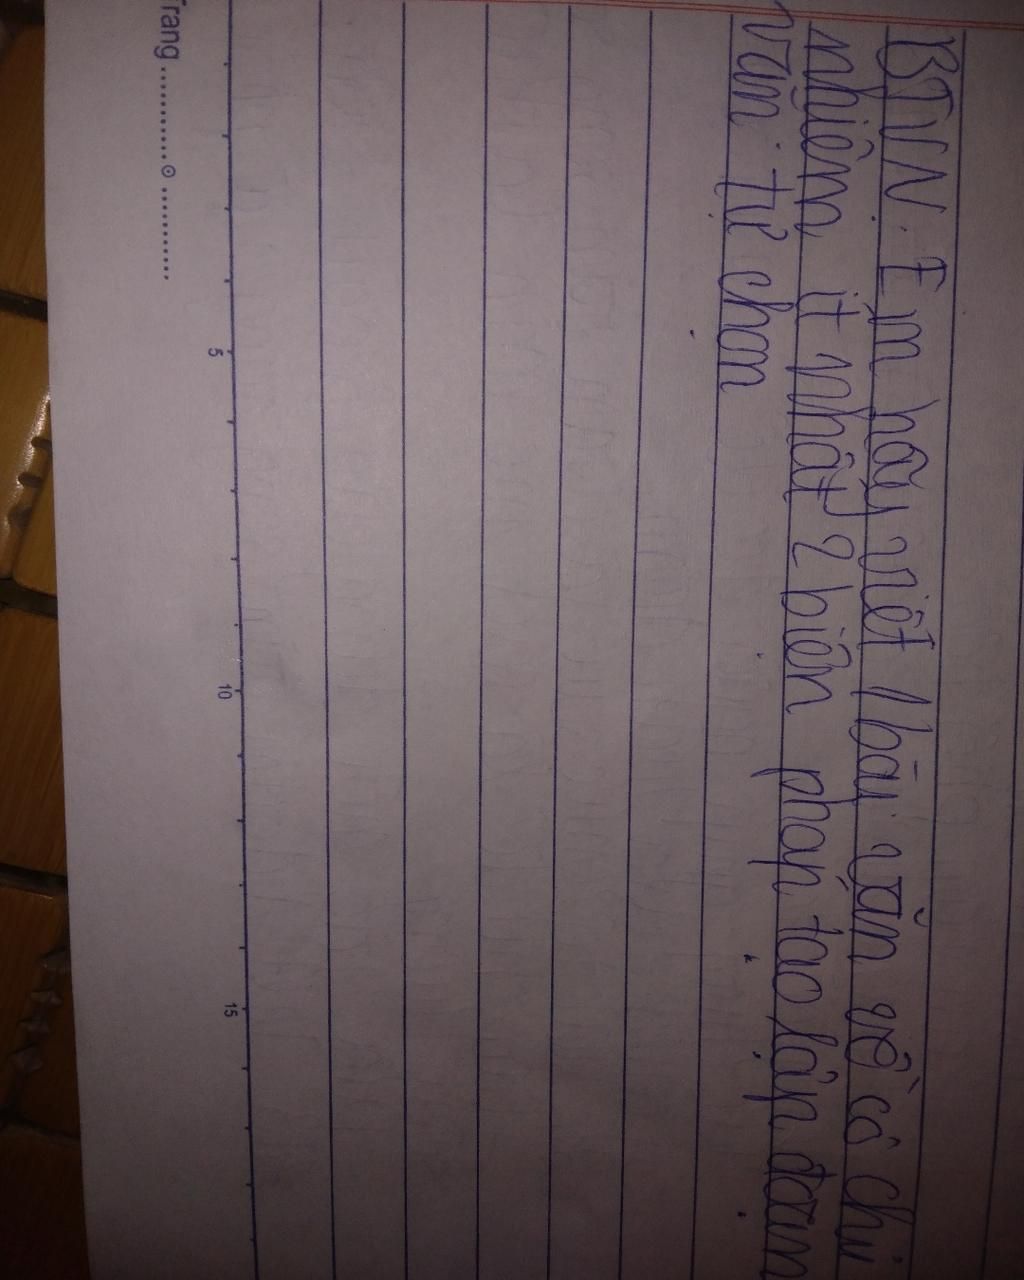 BTVN. Em hãy viết 1 bài văn về cô chủ
nhiệm ít nhất 2 biện pháp tạo lập đoạn
văn tự chọn
Trang ............⊙...........
5
10
15